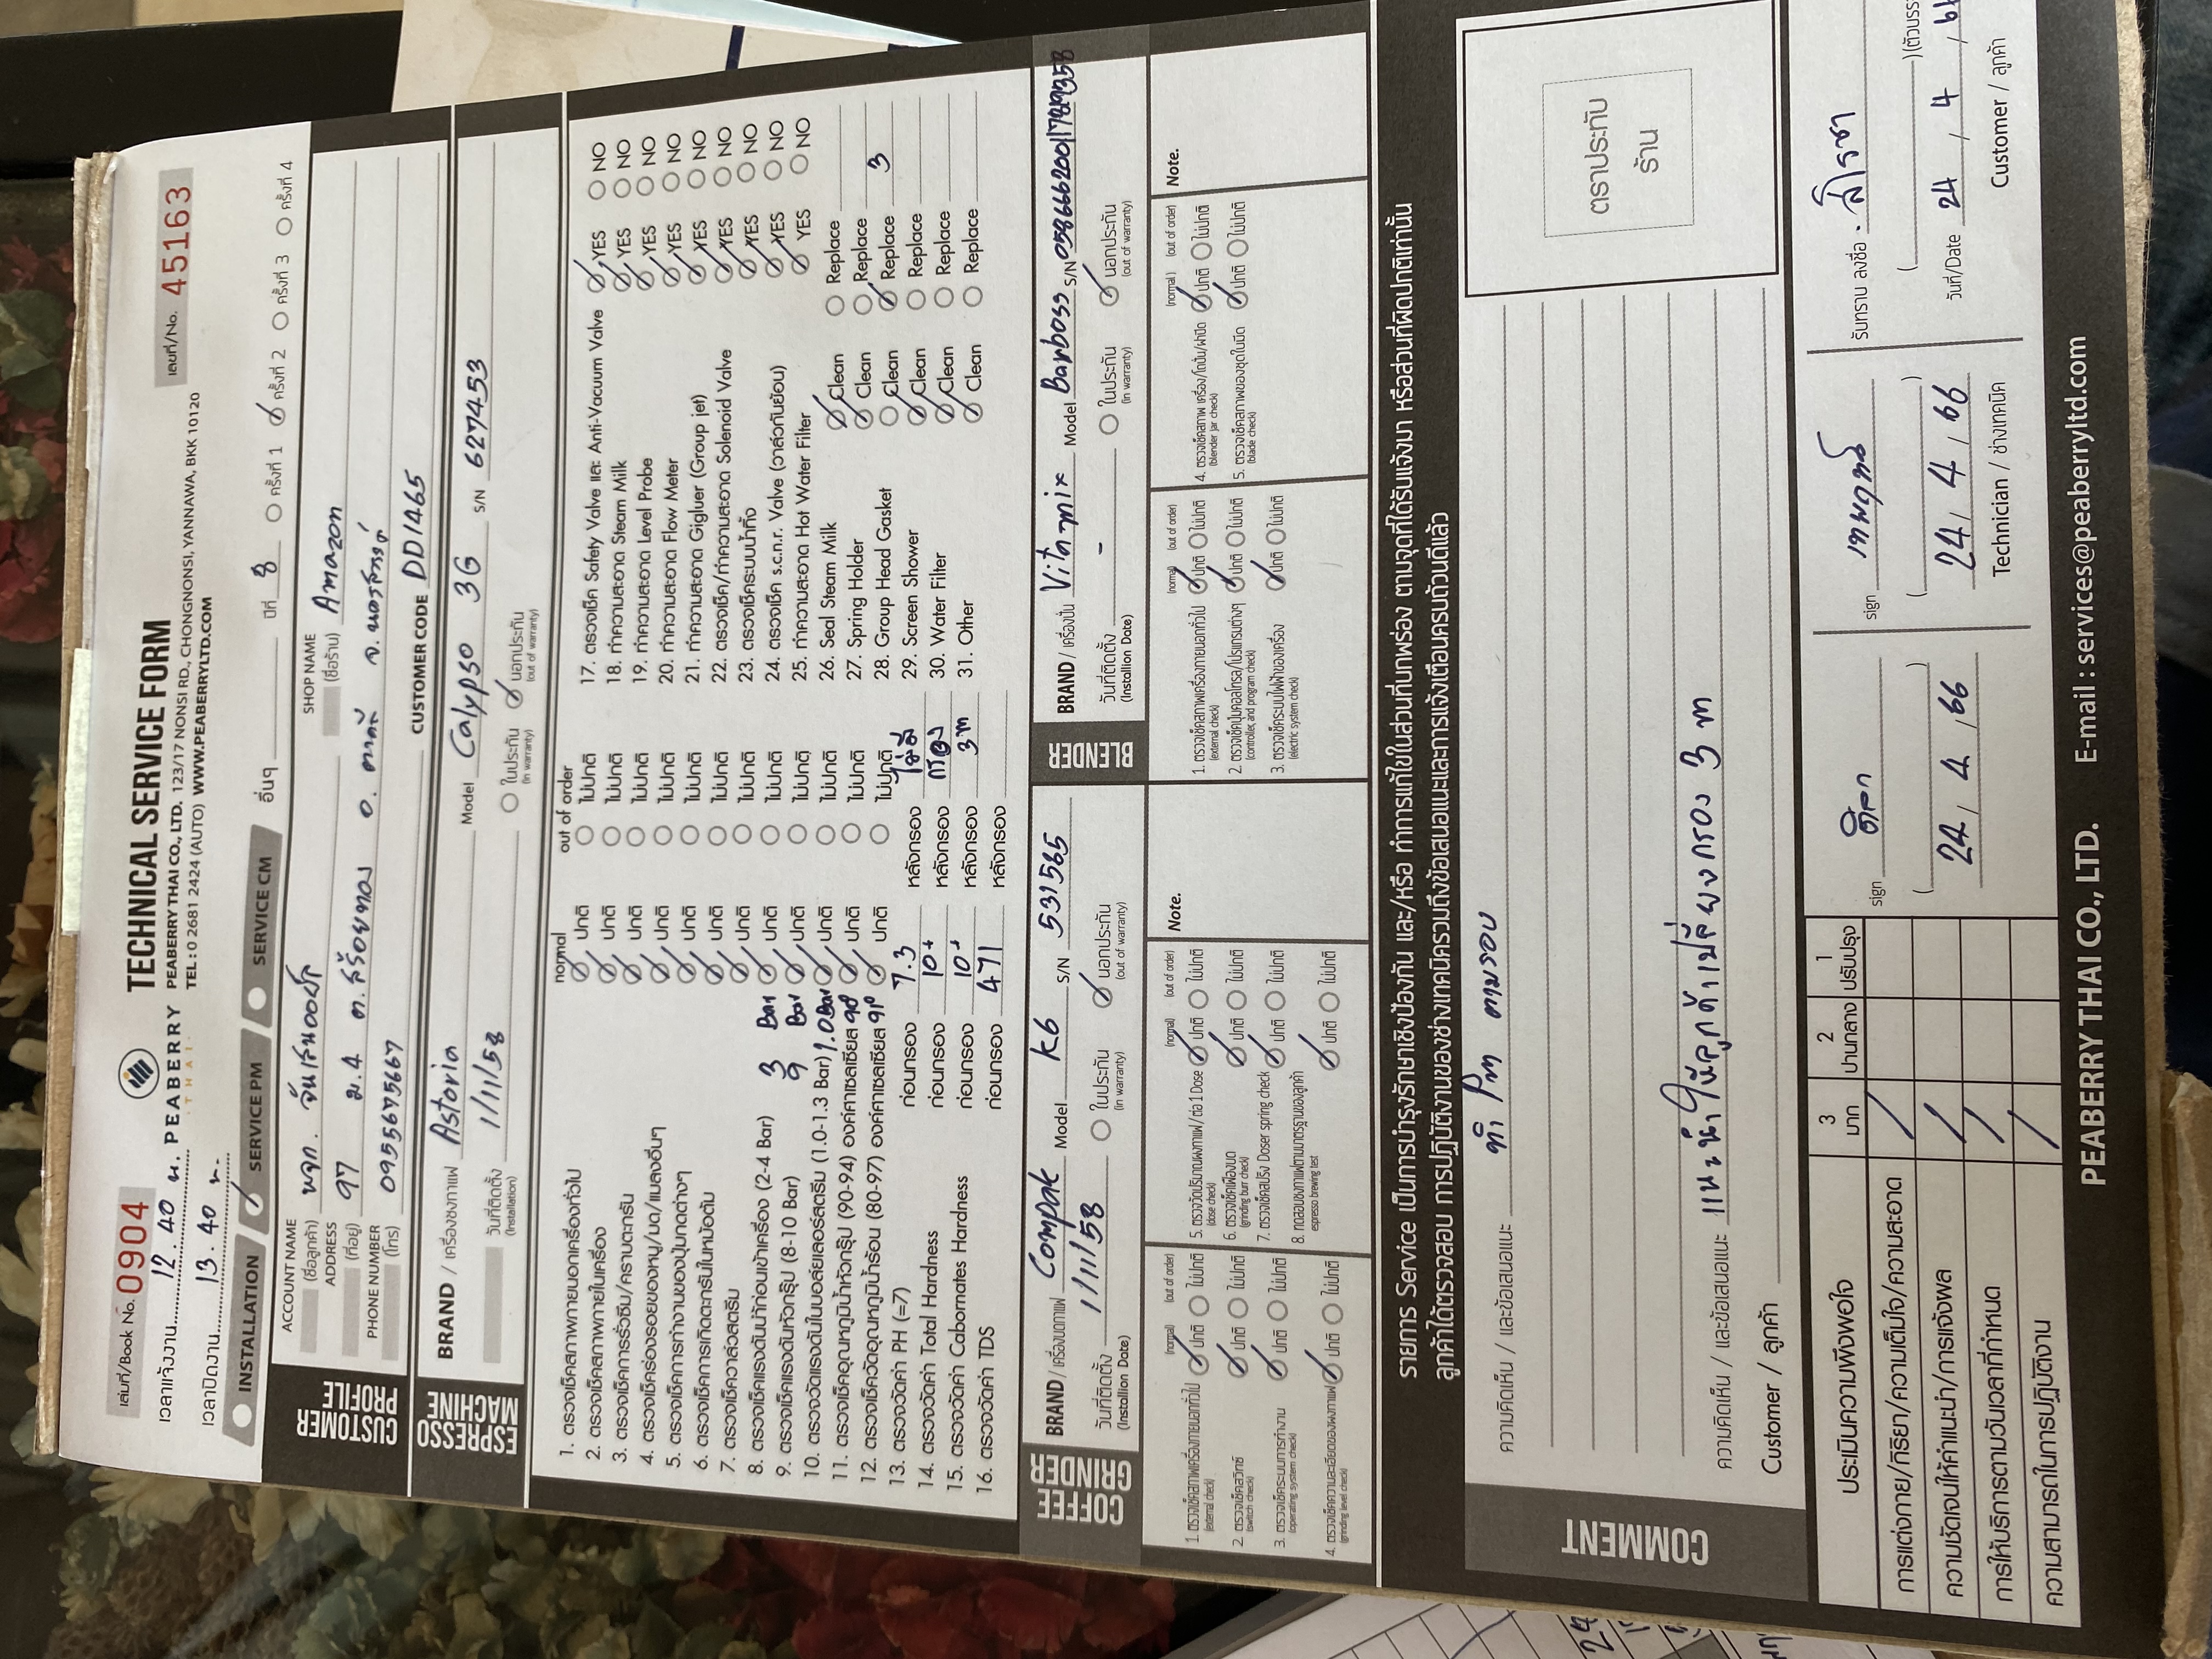 เล่มที่/Book No. 0904
เวลาแจ้งงาน 12.40 น.
เวลาปิดงาน 13.40 น.
PEABERRY
THAI
TECHNICAL SERVICE FORM
PEABERRY THAI CO., LTD. 123/17 NONSI RD., CHONGNONSI, YANNAWA, BKK 10120
TEL : 0 2681 2424 (AUTO) WWW.PEABERRYLTD.COM
เลขที่/No. 45163
INSTALLATION SERVICE PM SERVICE CM อื่นๆ ปีที่ 8 ครั้งที่ 1 ครั้งที่ 2 ครั้งที่ 3 ครั้งที่ 4
CUSTOMER PROFILE
ACCOUNT NAME (ชื่อลูกค้า) หจก. จันเสนออยล์ SHOP NAME (ชื่อร้าน) Amazon
ADDRESS (ที่อยู่) 97 ม.4 ต.สร้อยทอง อ. ตาคลี จ.นครสวรรค์
PHONE NUMBER (โทร) 0955675667 CUSTOMER CODE DD1465
ESPRESSO MACHINE
BRAND / เครื่องชงกาแฟ Astoria Model Calypso 3G S/N 627453
วันที่ติดตั้ง (Installation) 1/11/58 ในประกัน (in warranty) นอกประกัน (out of warranty)
normal out of order
1. ตรวจเช็คสภาพภายนอกเครื่องทั่วไป ปกติ ไม่ปกติ
2. ตรวจเช็คสภาพภายในเครื่อง ปกติ ไม่ปกติ
3. ตรวจเช็คการรั่วซึม/คราบตะกรัน ปกติ ไม่ปกติ
4. ตรวจเช็คร่องรอยของหนู/มด/แมลงอื่นๆ ปกติ ไม่ปกติ
5. ตรวจเช็คการทำงานของปุ่มกดต่างๆ ปกติ ไม่ปกติ
6. ตรวจเช็คการเกิดตะกรันในหม้อต้ม ปกติ ไม่ปกติ
7. ตรวจเช็ควาล์วสตรีม ปกติ ไม่ปกติ
8. ตรวจเช็คแรงดันน้ำก่อนเข้าเครื่อง (2-4 Bar) 3 Bar ปกติ ไม่ปกติ
9. ตรวจเช็คแรงดันหัวกรุ๊ป (8-10 Bar) 9 Bar ปกติ ไม่ปกติ
10. ตรวจวัดแรงดันในบอล์ยเลอร์สตรีม (1.0-1.3 Bar) 1.0 Bar ปกติ ไม่ปกติ
11. ตรวจเช็คอุณหภูมิน้ำหัวกรุ๊ป (90-94) องศ์ศาเซลเซียส 90° ปกติ ไม่ปกติ
12. ตรวจเช็ควัดอุณหภูมิน้ำร้อน (80-97) องค์ศาเซลเซียส 91° ปกติ ไม่ปกติ
13. ตรวจวัดค่า PH (=7) ก่อนกรอง 7.3 หลังกรอง ไม่มี
14. ตรวจวัดค่า Total Hardness ก่อนกรอง 10+ หลังกรอง กรอง
15. ตรวจวัดค่า Cabornates Hardness ก่อนกรอง 10+ หลังกรอง 3m
16. ตรวจวัดค่า TDS ก่อนกรอง 471 หลังกรอง
17. ตรวจเช็ค Safety Valve และ Anti-Vacuum Valve YES NO
18. ทำความสะอาด Steam Milk YES NO
19. ทำความสะอาด Level Probe YES NO
20. ทำความสะอาด Flow Meter YES NO
21. ทำความสะอาด Gigluer (Group jet) YES NO
22. ตรวจเช็ค/ทำความสะอาด Solenoid Valve YES NO
23. ตรวจเช็คระบบน้ำทิ้ง YES NO
24. ตรวจเช็ค s.c.n.r. Valve (วาล์วกันย้อน) YES NO
25. ทำความสะอาด Hot Water Filter YES NO
26. Seal Steam Milk Clean Replace
27. Spring Holder Clean Replace
28. Group Head Gasket Clean Replace 3
29. Screen Shower Clean Replace
30. Water Filter Clean Replace
31. Other Clean Replace
COFFEE GRINDER
BRAND / เครื่องบดกาแฟ Compak Model K6 S/N 531585
วันที่ติดตั้ง (Installion Date) 1/11/58 ในประกัน (in warranty) นอกประกัน (out of warranty)
BLENDER
BRAND / เครื่องปั่น Vitamix Model Barboss S/N
วันที่ติดตั้ง (Installation Date) - ในประกัน (in warranty) นอกประกัน (out of warranty)
(normal) (out of order)
1. ตรวจเช็คสภาพเครื่องภายนอกทั่วไป (external check) ปกติ ไม่ปกติ
2. ตรวจเช็คสวิทช์ (switch check) ปกติ ไม่ปกติ
3. ตรวจเช็คระบบการทำงาน (operating system check) ปกติ ไม่ปกติ
4. ตรวจเช็คความละเอียดของผงกาแฟ (grinding level check) ปกติ ไม่ปกติ
(normal) (out of order)
5. ตรวจวัดปริมาณผงกาแฟ/ต่อ 1 Dose (dose check) ปกติ ไม่ปกติ
6. ตรวจเช็คเฟืองบด (grinding burr check) ปกติ ไม่ปกติ
7. ตรวจเช็คสปริง Doser spring check ปกติ ไม่ปกติ
8. ทดสอบชงกาแฟตามมาตรฐานของลูกค้า espresso brewing test ปกติ ไม่ปกติ
Note.
(normal) (out of order)
1. ตรวจเช็คสภาพเครื่องภายนอกทั่วไป (external check) ปกติ ไม่ปกติ
2. ตรวจเช็คปุ่มคอลโทรล/โปรแกรมต่างๆ (controller, and program check) ปกติ ไม่ปกติ
3. ตรวจเช็คระบบไฟฟ้าของเครื่อง (electric system check) ปกติ ไม่ปกติ
(normal ) (out of order)
4. ตรวจเช็คสภาพ เครื่อง/โถปั่น/ฝาปิด (blender jar check) ปกติ ไม่ปกติ
5. ตรวจเช็คสภาพของชุดใบมีด (blade check) ปกติ ไม่ปกติ
Note.
รายการ Service เป็นการบำรุงรักษาเชิงป้องกัน และ/หรือ ทำการแก้ไขในส่วนที่บกพร่อง ตามจุดที่ได้รับแจ้งมา หรือส่วนที่ผิดปกติเท่านั้น
ลูกค้าได้ตรวจสอบ การปฏิบัติงานของช่างเทคนิครวมถึงข้อเสนอแนะและการแจ้งเตือนครบถ้วนดีแล้ว
COMMENT
ความคิดเห็น / และข้อเสนอแนะ ทำ Pm ตามรอบ
ตราประทับ
ร้าน
ความคิดเห็น / และข้อเสนอแนะ แนะนำให้ลูกค้าเปลี่ยงกรอง 3 m
Customer / ลูกค้า
ประเมินความพึงพอใจ 3 มาก 2 ปานกลาง 1 ปรับปรุง
การแต่งกาย/กิริยา/ความเต็มใจ/ความสะอาด
ความชัดเจนให้คำแนะนำ/การแจ้งผล
การให้บริการตามวันเวลาที่กำหนด
ความสามารถในการปฏิบัติงาน
sign
( )
24 / 4 / 66
sign เทพฤทธิ์
( )
24 / 4 / 66
Technician / ช่างเทคนิค
รับทราบ ลงชื่อ
( ) (ตัวบรร
วันที่/Date 24 / 4 /
Customer / ลูกค้า
PEABERRY THAI CO., LTD. E-mail : services@peaberryltd.com